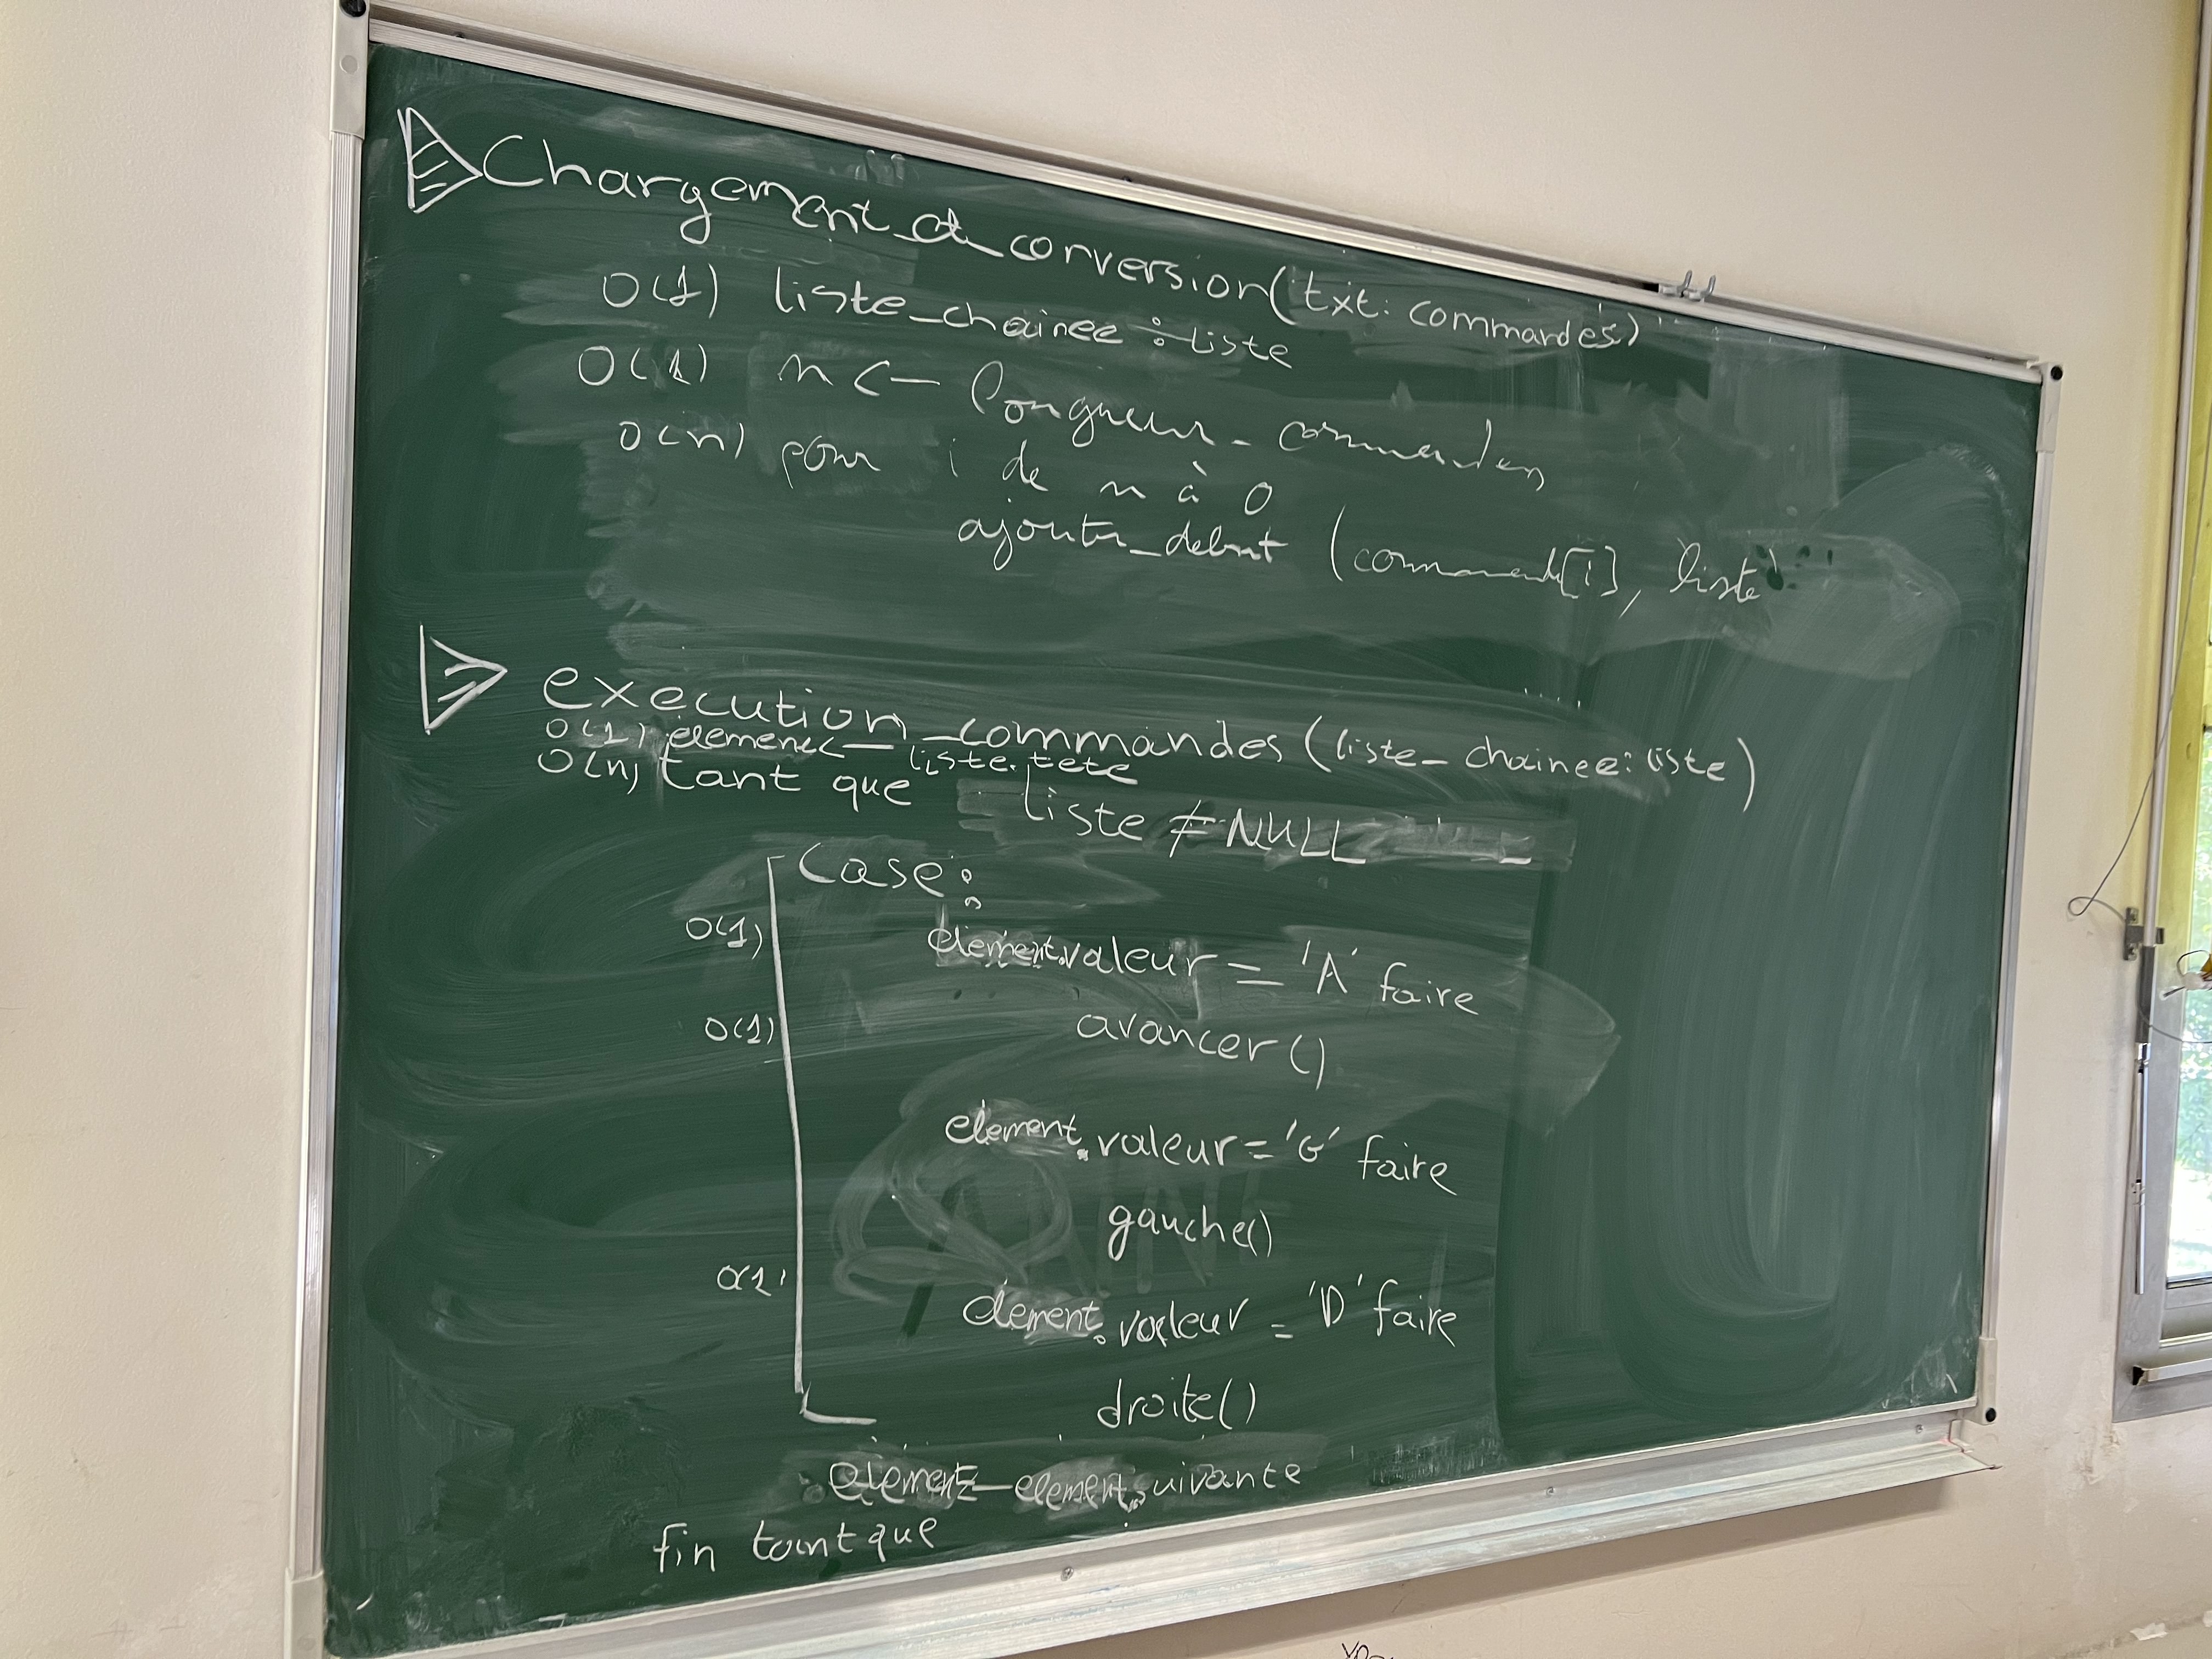 Chargement_et_conversion(txt: commandes)
O(1) liste_chainee : liste
O(1) n <- longueur_commandes
O(n) pour i de n à 0
ajouter_debut (commande[i], liste
execution_commandes (liste_chainee: liste)
O(1) element <- liste.tete
O(n) tant que liste ≠ NULL
Case :
O(1) element.valeur = 'A' faire
O(1) avancer ()
element.valeur = 'G' faire
gauche()
O(1) element.valeur = 'D' faire
droite()
element <- element.suivante
fin tant que